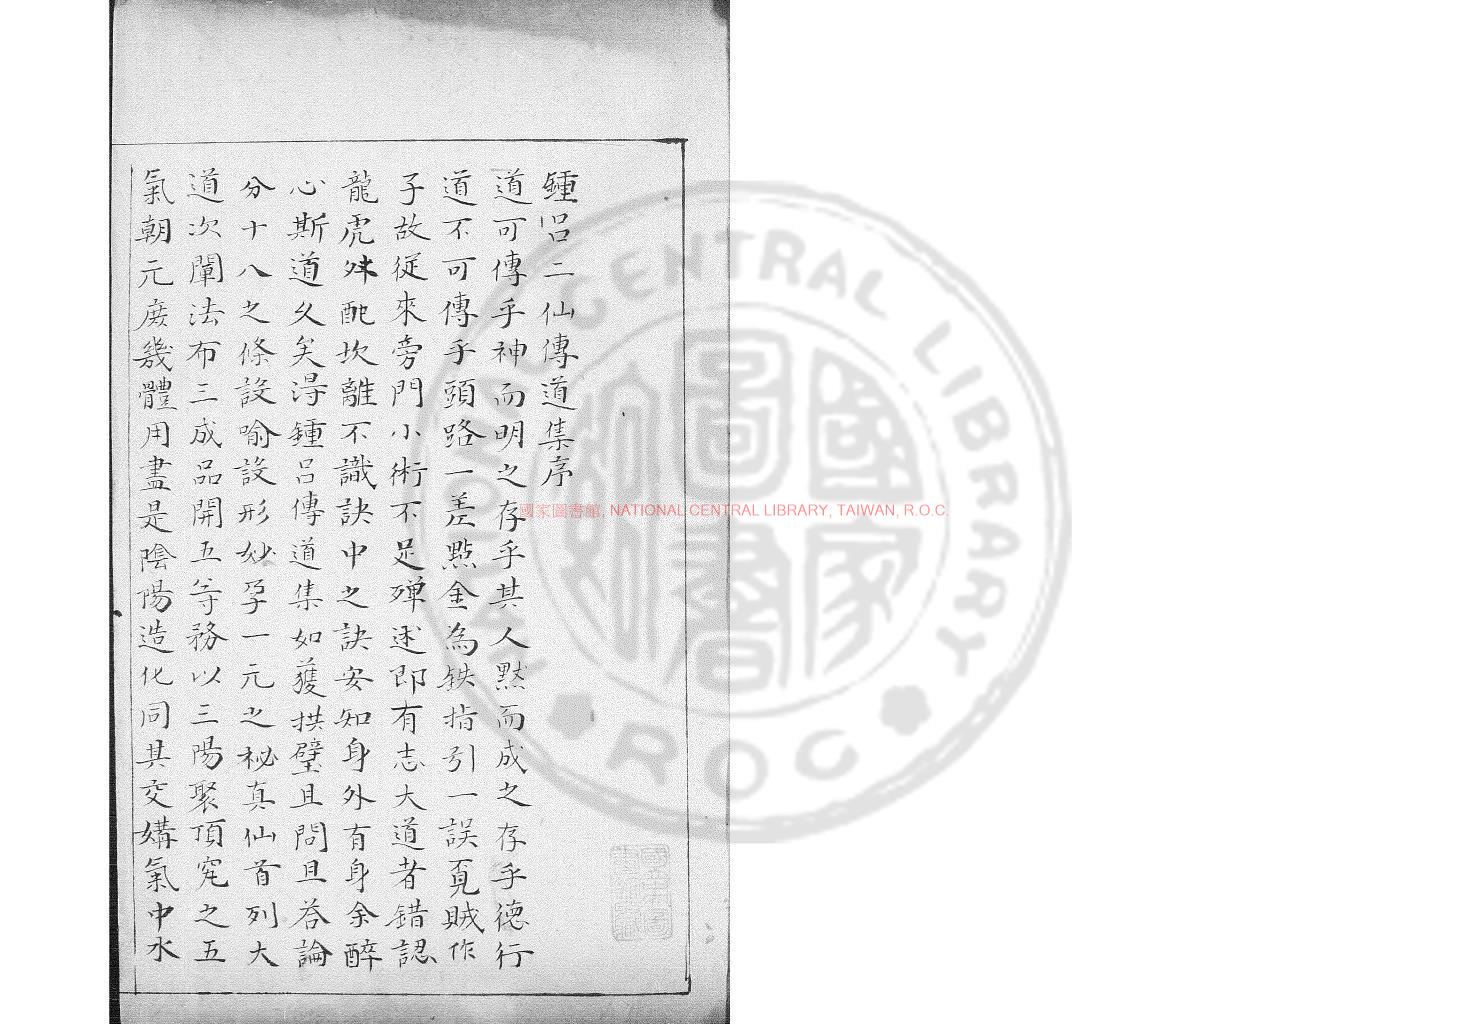 鍾呂二仙傳道集序
道可傳乎神而明之存乎其人黙而成之存乎德行
道不可傳乎頭路一差點金為鉄指引一誤覓賊作
子故従來旁門小術不足殫述即有志大道者錯認
龍虎舛配坎離不識訣中之訣安知身外有身余醉
心斯道久矣淂鍾呂傳道集如獲拱璧且問且答論
分十八之條設喻設形妙孕一元之祕真仙首列大
道次闡法布三成品開五等務以三陽聚頂䆒之五
氣朝元庻幾體用盡是陰陽造化同其交媾氣中水
國家圖書館, NATIONAL CENTRAL LIBRARY, TAIWAN, R.O.C
NATIONAL CENTRAL LIBRARY
ROC
國家圖書館